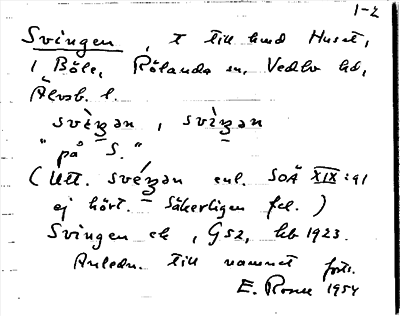 1-2
Svingen, t till hmd Huset,
i Böle, Rölanda sn, Vedbo hd,
Älvsb. l.
svèŋən, svìŋən
"på S."
(Utt. svéŋən enl. SOÄ XIX:91
ej hört. Säkerligen fel.)
Svingen ek, G52, hb 1923.
Anledn. till namnet forts.
E. Rosn 1954